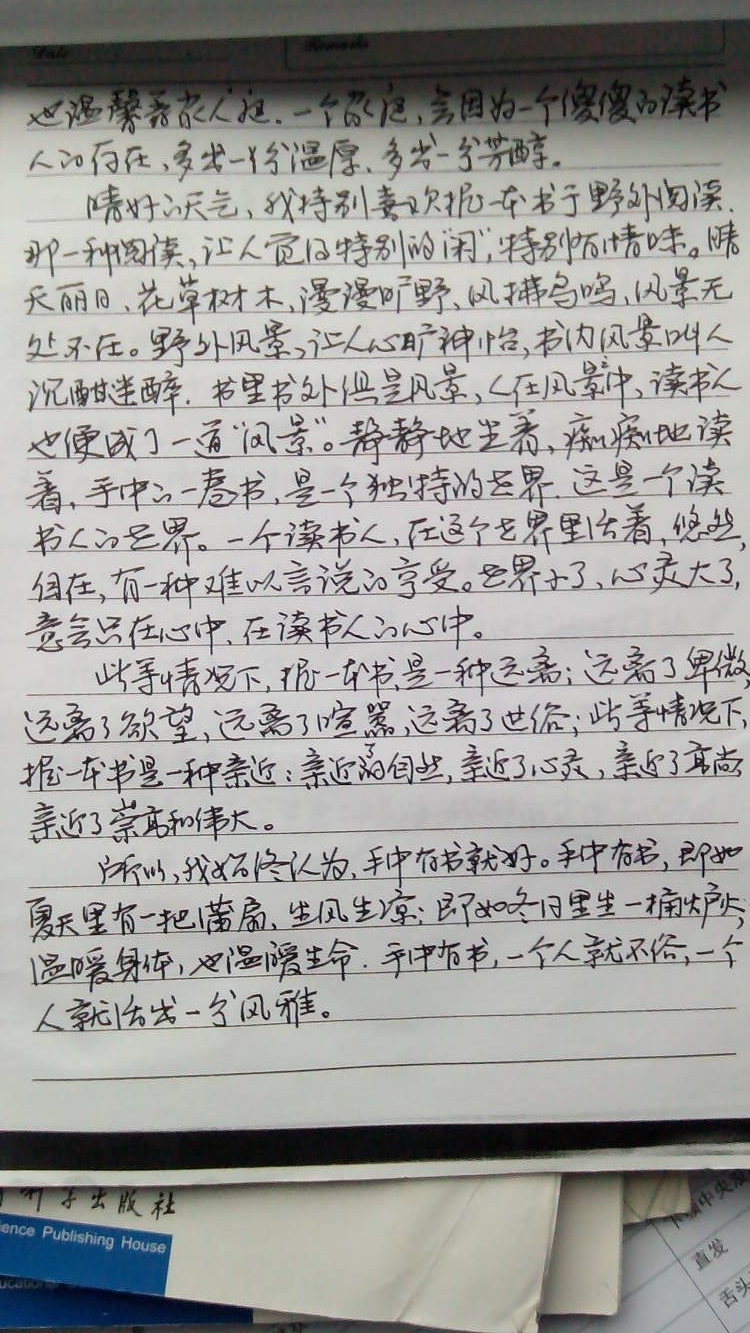 Date
Remarks
也温馨着家人庭。一个家庭,会因为一个傻傻的读书
人的存在,多出一份温厚、多出一分芳醇。
晴好的天气,我特别喜欢握一本书于野外阅读.
那一种阅读,让人觉得特别的"闲",特别有情味。晴
天丽日、花草树木,漫漫旷野、风拂鸟鸣,风景无
处不在。野外风景,让人心旷神怡,书内风景叫人
沉酣迷醉.书里书外俱是风景,人在风景中,读书人
也便成了一道"风景"。静静地坐着,痴痴地读
着,手中的一卷书,是一个独特的世界.这是一个读
书人的世界。一个读书人,在这个世界里活着,悠然,
自在,有一种难以言说的享受。世界小了,心灵大了,
意会只在心中,在读书人的心中。
此等情况下,握一本书,是一种远离;远离了卑微,
远离了欲望,远离了喧嚣,远离了世俗;此等情况下,
握一本书是一种亲近:亲近了自然,亲近了心灵,亲近了高尚
亲近了崇高和伟大。
所以,我始终认为,手中有书就好。手中有书,即如
夏天里有一把蒲扇,生风生凉;即如冬日里生一桶炉火,
温暖身体,也温暖生命.手中有书,一个人就不俗,一个
人就活出一分风雅。
出版社
ience Publishing House
ucational
中央
直发
舌头